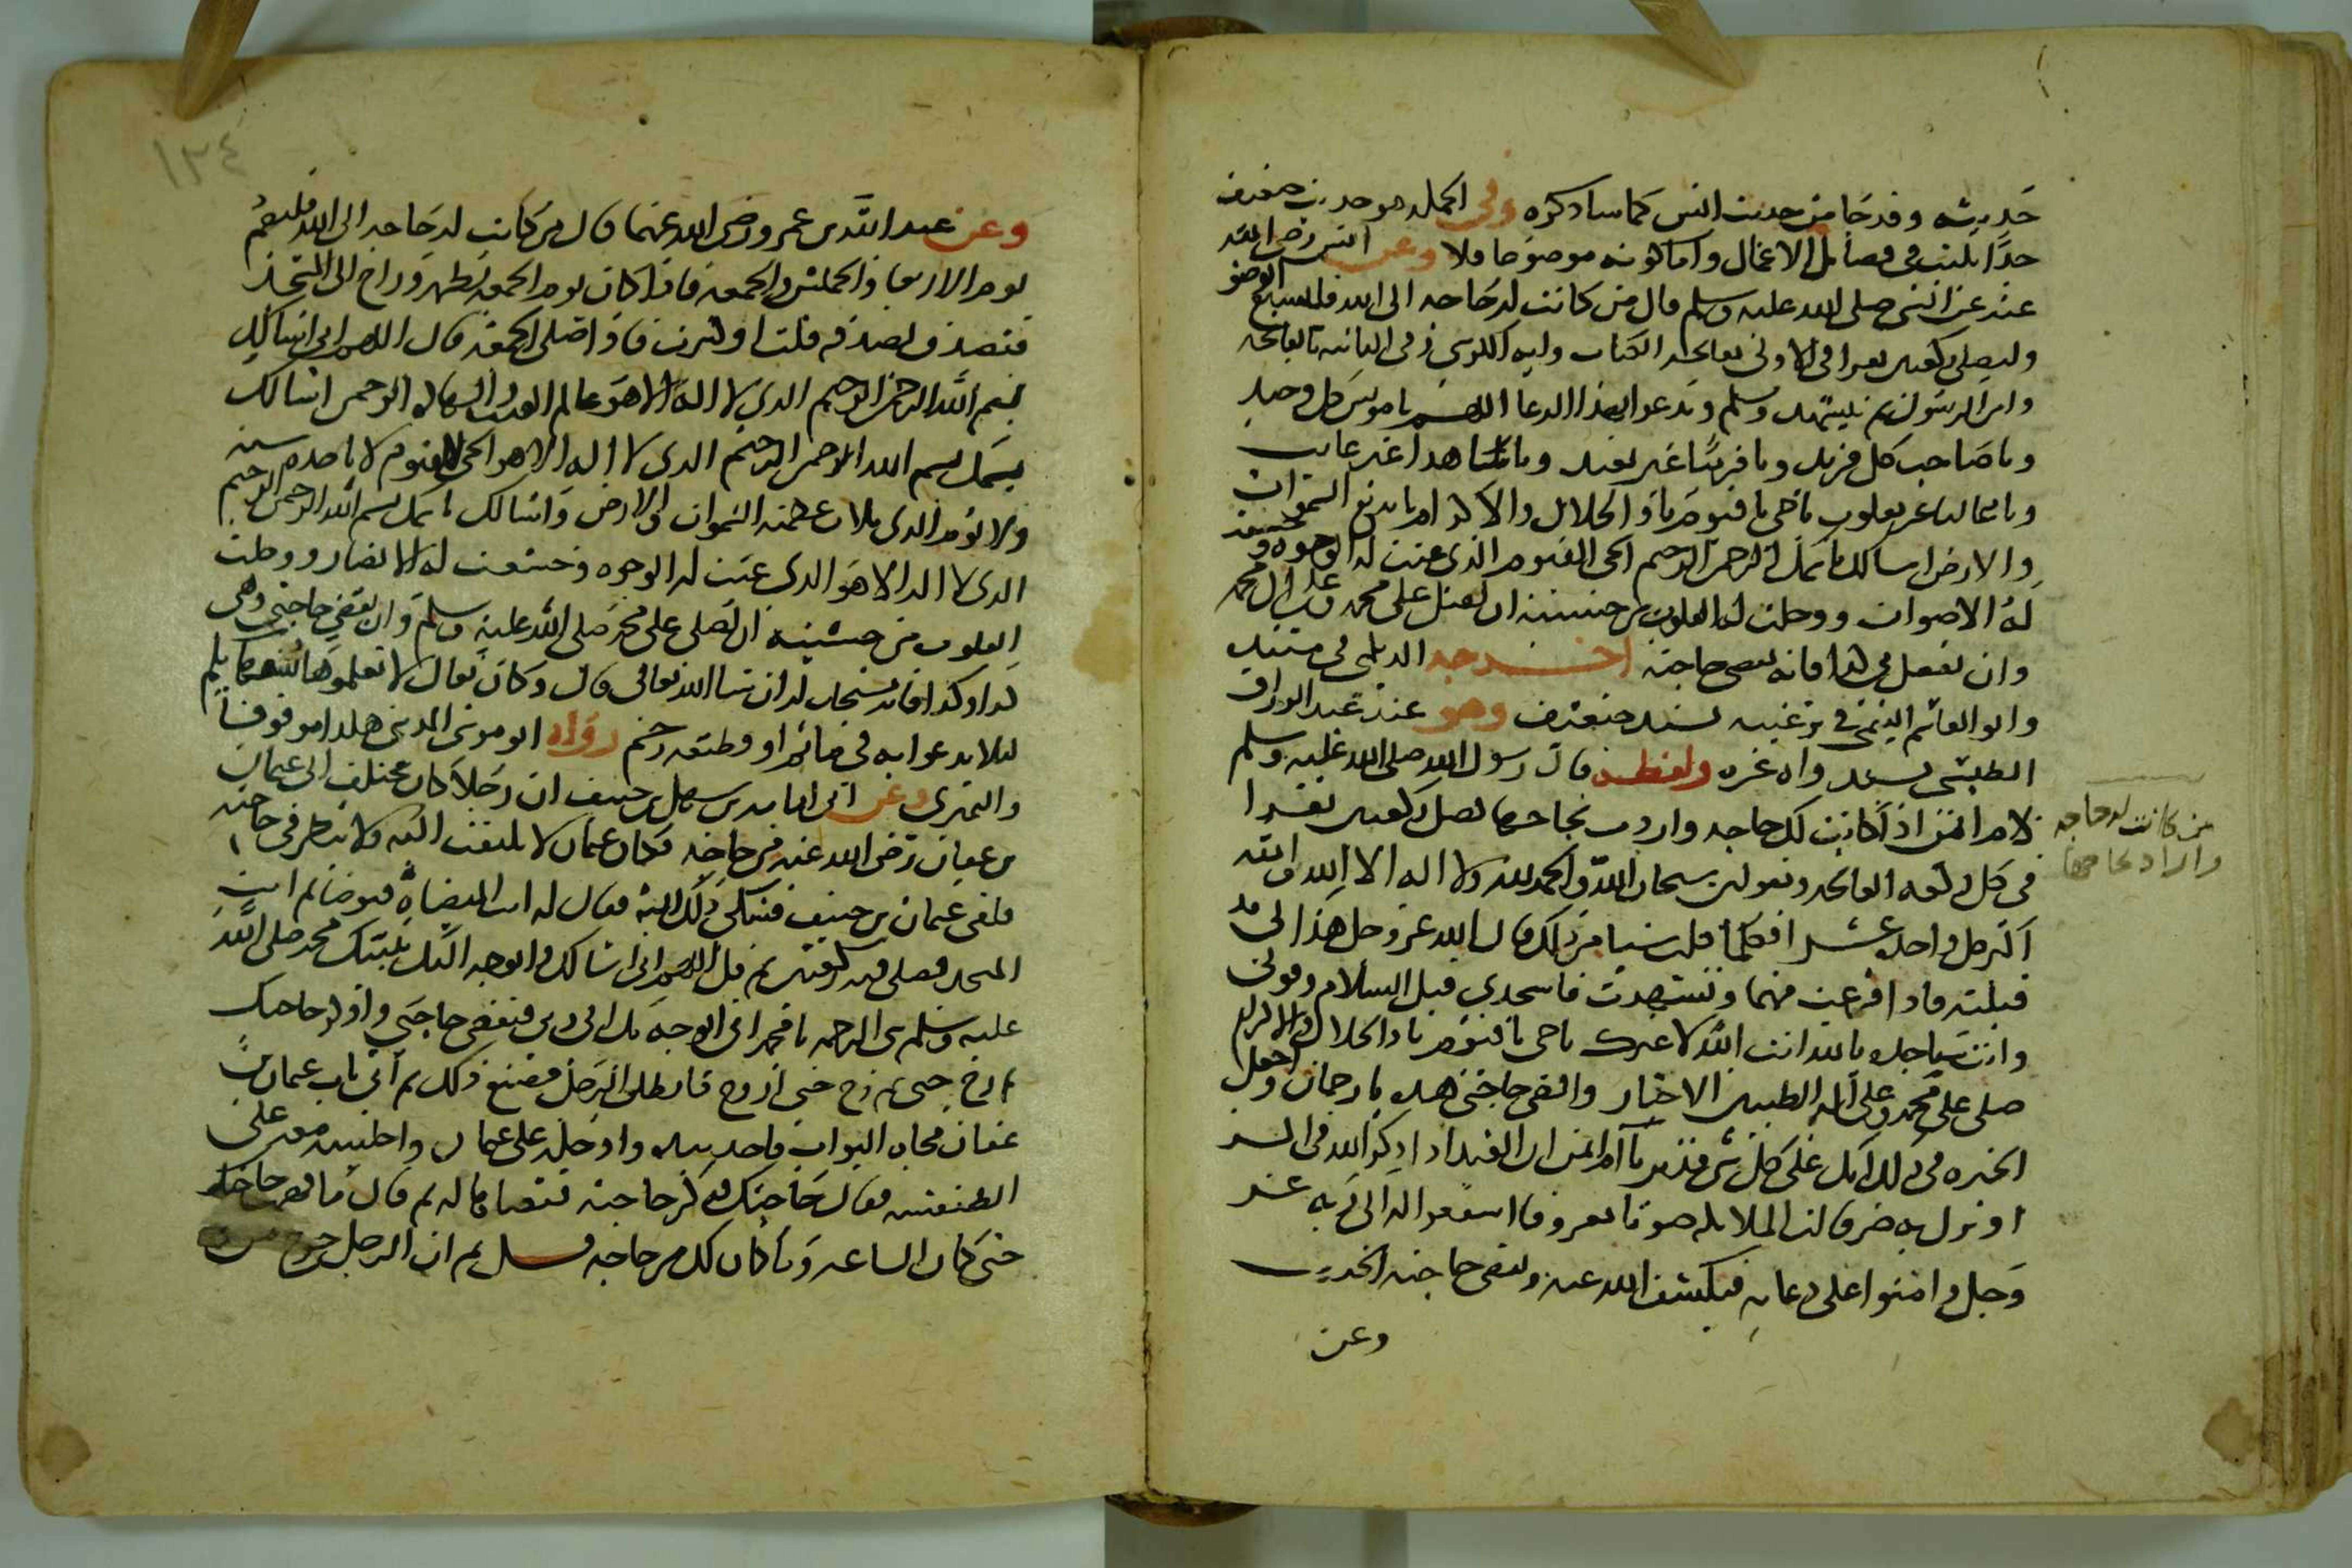 حديثه وقد جا من حديث انس كما سا ذكره وفي الجمله هو حديث ضعيف
جدا يكتب في فضايل الاعمال واما كونه موضوعا فلا وعن انس رضي الله
عنه عن النبي صلى الله عليه وسلم قال من كانت له حاجه الى الله فليسبغ الوضو
وليصلي ركعتين يقرا في الاولى بفاتحه الكتاب وايه الكرسي وفي الثانيه بالفاتحه
وامن الرسول ثم يتشهد ويسلم ويدعوا بهذا الدعا اللهم يا مونس كل وحيد
ويا صاحب كل فريد ويا قريبا غير بعيد ويا شاهدا غير غايب
ويا غالبا غير مغلوب يا حي يا قيوم يا ذا الجلال والاكرام يا بديع السموات
والارض اسالك باسمك الرحمن الرحيم الحي القيوم الذي عنت له الوجوه وخشعت
له الاصوات ووجلت له القلوب من خشيته ان تصل على محمد وعلى ال محمد
وان تفعل بي كذا فانه تقضى حاجته اخرجه الديلمي في مسنده
وابو القاسم التيمي في ترغيبه بسند ضعيف وهو عند عبد الرزاق
الطبسي بسند واه غره ولفظه قال رسول الله صلى الله عليه وسلم
لام ايمن اذا كانت لك حاجه واردت نجاحها فصلي ركعتين تقرا
في كل ركعه الفاتحه وتقولين سبحان الله والحمد لله ولا اله الا الله والله
اكبر كل واحد عشرا فكلما قلت شيا من ذلك قال الله عز وجل هذا لي قد
قبلته فاذا فرغت منهما وتشهدت فاسجدي قبل السلام وقولي
وانت ساجده يا الله انت الله لا غيرك يا حي يا قيوم يا ذا الجلال والاكرام
صلى على محمد وعلى اله الطيبين الاخيار واقض حاجتي هذه يا رحمان واجعل
الخيره في ذلك انك على كل شي قدير يا ام ايمن ان العبد اذا ذكر الله في السر
او نزل به ضر قالت الملايكه صوتا معروفا اشفعوا له الى ربه عز
وجل وامنوا على دعايه فيكشف الله عنه ويقض حاجته الحديث
وعن
من كانت له حاجه
واراد نجاحها
١٣٤
وعن عبد الله بن عمرو رضي الله عنهما قال من كانت له حاجه الى الله فليصم
يوم الاربعا والخميس والجمعه فاذا كان يوم الجمعه تطهر وراح الى المسجد
فتصدق بصدقه قلت او كثرت فاذا صلى الجمعه قال اللهم اني اسالك
بسم الله الرحمن الرحيم الذي لا اله الا هو عالم الغيب والشهاده الرحمن اسالك
بسمك بسم الله الرحمن الرحيم الذي لا اله الا هو الحي القيوم لا تاخذه سنه
ولا نوم الذي ملات عظمته السموات والارض واسالك باسمك بسم الله الرحمن الرحيم
الذي لا اله الا هو الذي عنت له الوجوه وخشعت له الابصار ووجلت
القلوب من خشيته ان تصلى على محمد صلى الله عليه وسلم وان تقضي حاجتي وهي
كذا وكذا فانه يستجاب له ان شا الله تعالى قال وكان يقال لا تعلموها سفهاكم
ليلا يدعوا به في ماثم او قطيعه رحم رواه ابو موسى المديني هكذا موقوفا
والنمري وعن ابي امامه بن سهل بن حنيف ان رجلا كان يختلف الى عثمان
بن عفان رضي الله عنه في حاجه فكان عثمان لا يلتفت اليه ولا ينظر في حاجته
فلقي عثمان بن حنيف فشكى ذلك اليه فقال له ايت الميضاه فتوضا ثم ايت
المسجد فصلى فيه ركعتين ثم قل اللهم اني اسالك واتوجه اليك بنبيك محمد صلى الله
عليه وسلم نبي الرحمه يا محمد اني اتوجه بك الى ربي فتقضى حاجتي واذكر حاجتك
ثم رح حتى اروح فانطلق الرجل فصنع ذلك ثم اتى باب عثمان بن
عفان فجاه البواب فاخذ بيده وادخله على عثمان واجلسه معه على
الطنفسه فقال حاجتك فذكر حاجته فقضاها له ثم قال ما فهمت حاجتك
حتى كان الساعه وما كان لك من حاجه فسل ثم ان الرجل خرج من